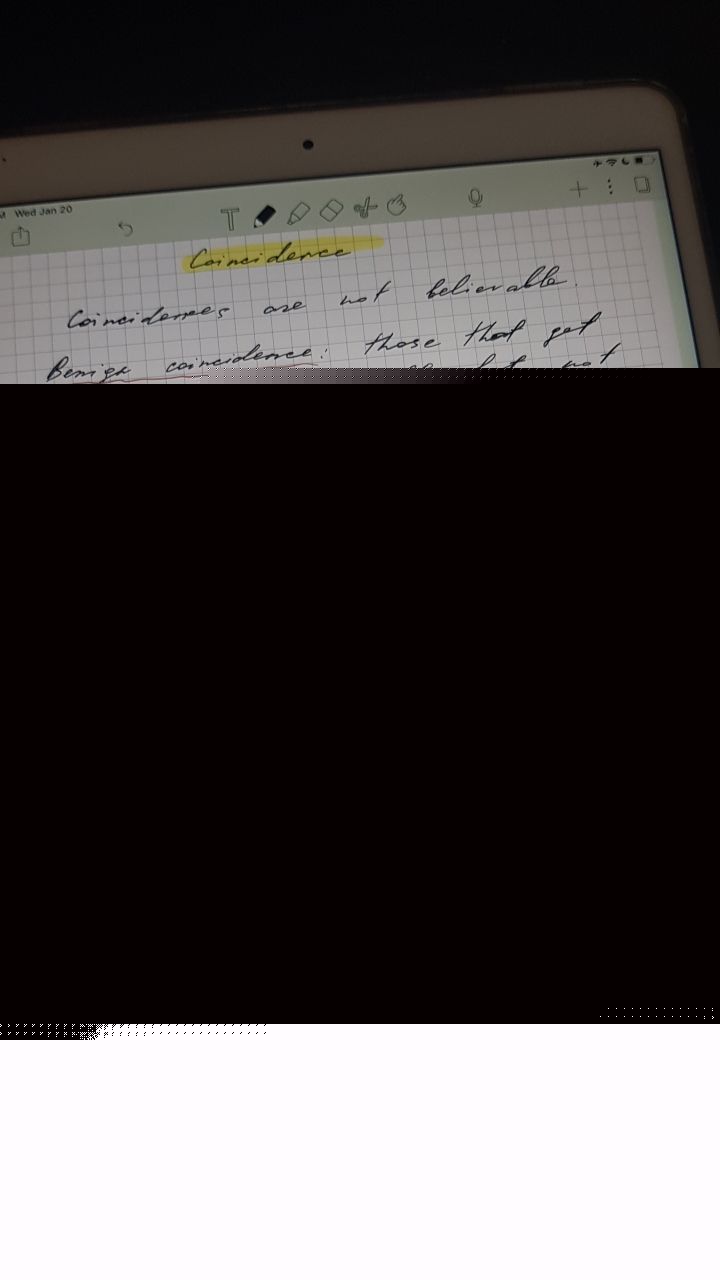 Wed Jan 20
T
Coincidence
Coincidences are not believable.
Benign coincidence: those that get
not